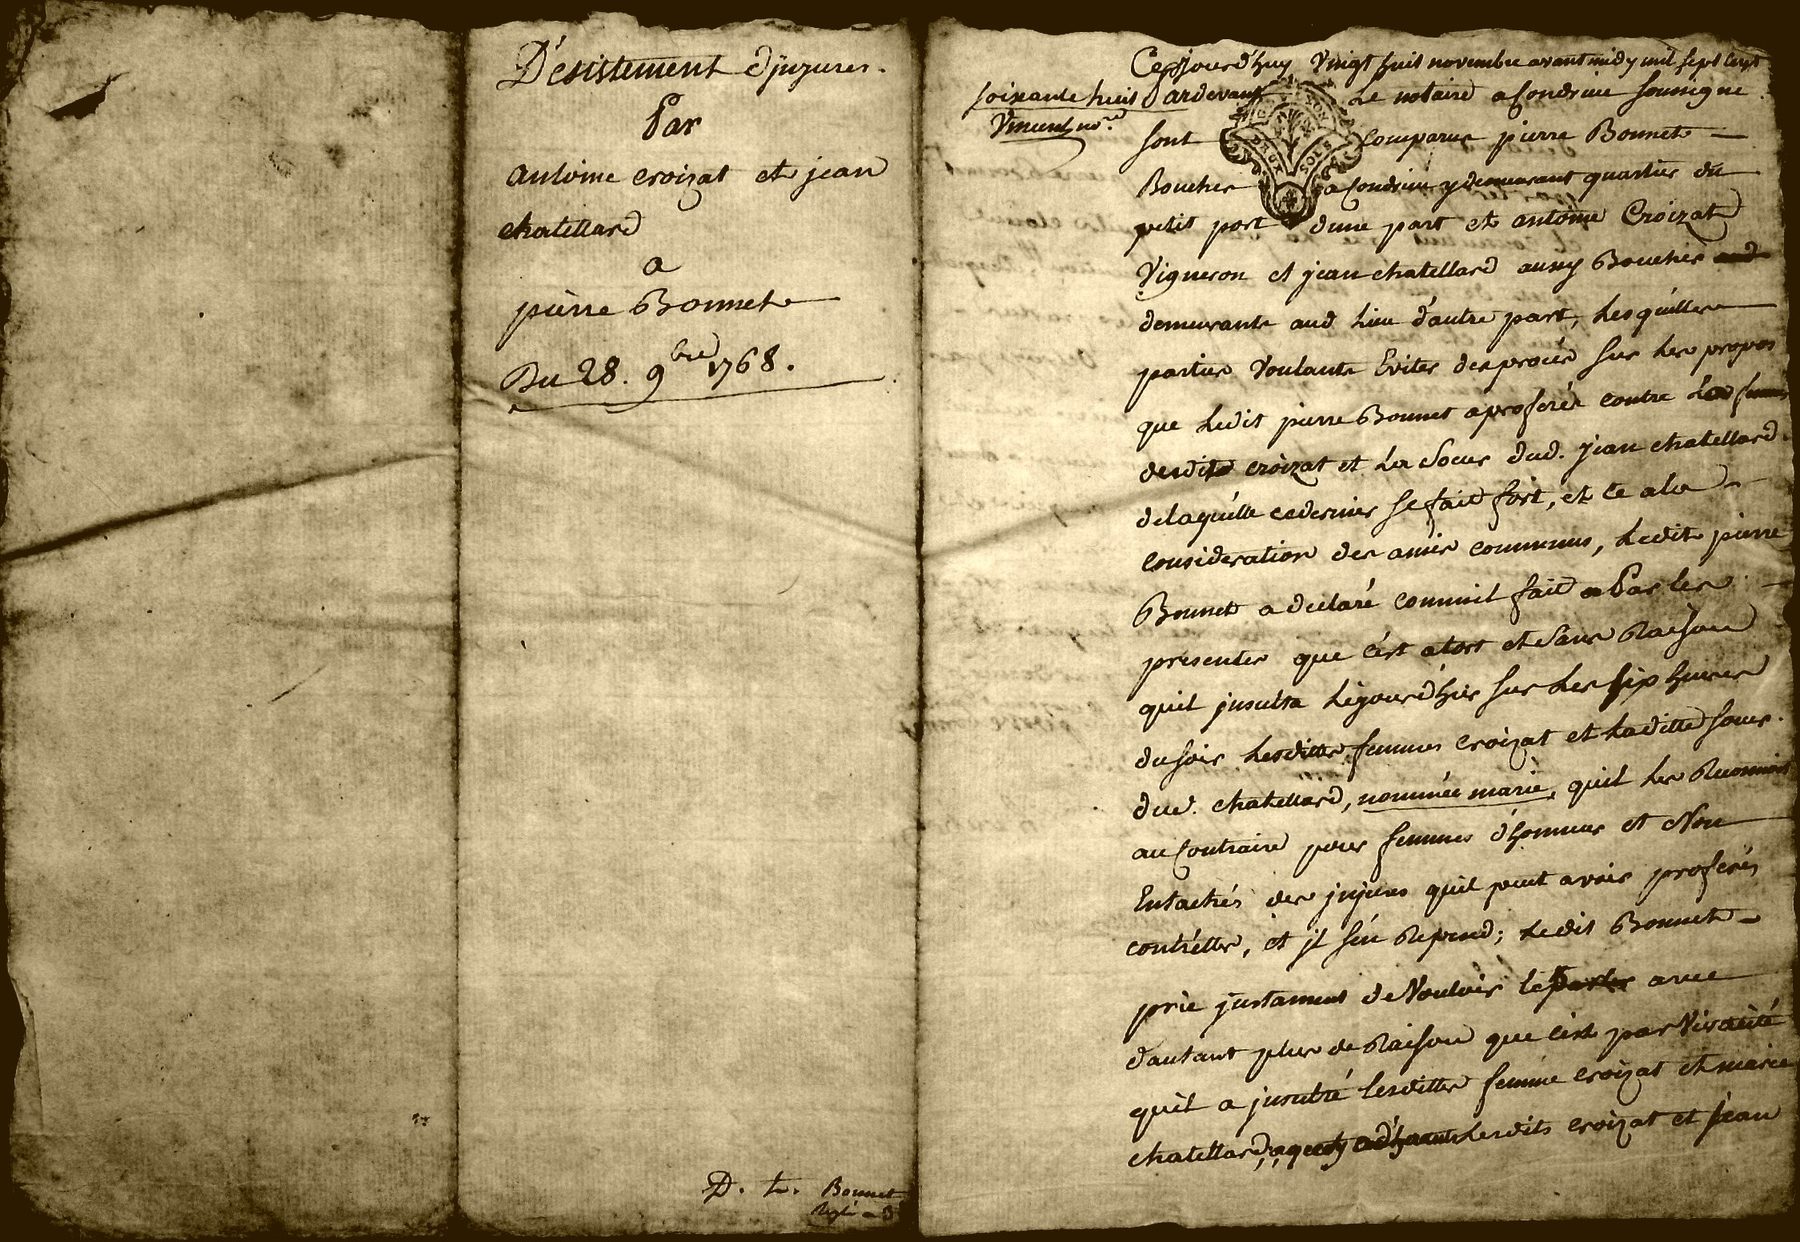 Désistement djnjures.
Par
antoine croizat et jean
chatellard
a
pierre Bonnet
Du 28. 9bre 1768.
D. L. Bonnet
Ce jourd'huy Vingt huit novembre avant midy mil sept cent
soixante huit Pardevant Le notaire a Condrieu soussigné
Vincent nore.
sont comparus pierre Bonnet
Boucher a Condrieu y demeurant quartier du
petit port dune part et antoine Croizat
Vigneron et jean chatellard aussy Boucher
demeurants aud Lieu d'autre part, Lesquelles
parties Voulants Eviter des procés sur Les propos
que Ledit pierre Bonnet a proferés contre La femme
dudit croizat et La Soeur dud. jean chatellard
delaquelle cedernier se fait fort, et ce a la
consideration des amis communs, Ledit pierre
Bonnet a declaré comm'il fait Par les
presentes que c'est atort et Sans Raison
quil jnsulta Le jourd'hier sur Les six heures
du soir Lesdittes femmes croizat et Laditte soeur
dud. chatellard, nommée marie, quil Les Reconnoit
au Contraire pour femmes d'honneur et Non
Entachés des jnjures quil peut avoir proferés
contr'elles, et jl s'en Repend; Ledit Bonnet
prie justament de Vouloir avec
d'autant plus de Raison que c'est par Vivacité
quil a jnsulté lesdittes femme croizat et marie
chatellard, Lesdits croizat et jean